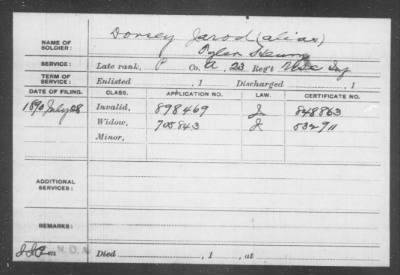 NAME OF SOLDIER: Dorsey Jarod (alias)
Tyler Henry
SERVICE: Late rank, P Co. A, 23 Reg't U.S.C. Inf
TERM OF SERVICE: Enlisted , 1 Discharged , 1
DATE OF FILING. CLASS. APPLICATION NO. LAW. CERTIFICATE NO.
1890 July 28 Invalid, 898469 J 848863
Widow, 705843 J 532911
Minor,
ADDITIONAL SERVICES:
REMARKS:
Died , 1 , at